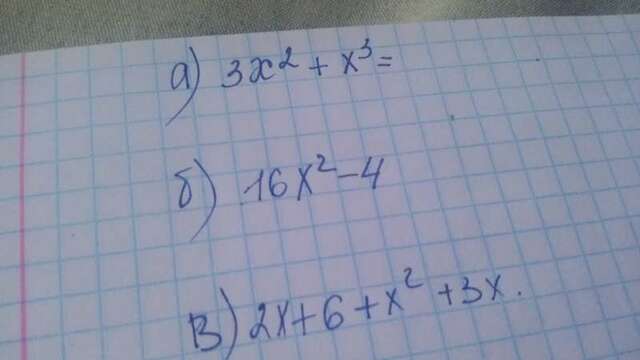 а) 3x² + x³ =
б) 16x² - 4
в) 2x + 6 + x² + 3x.